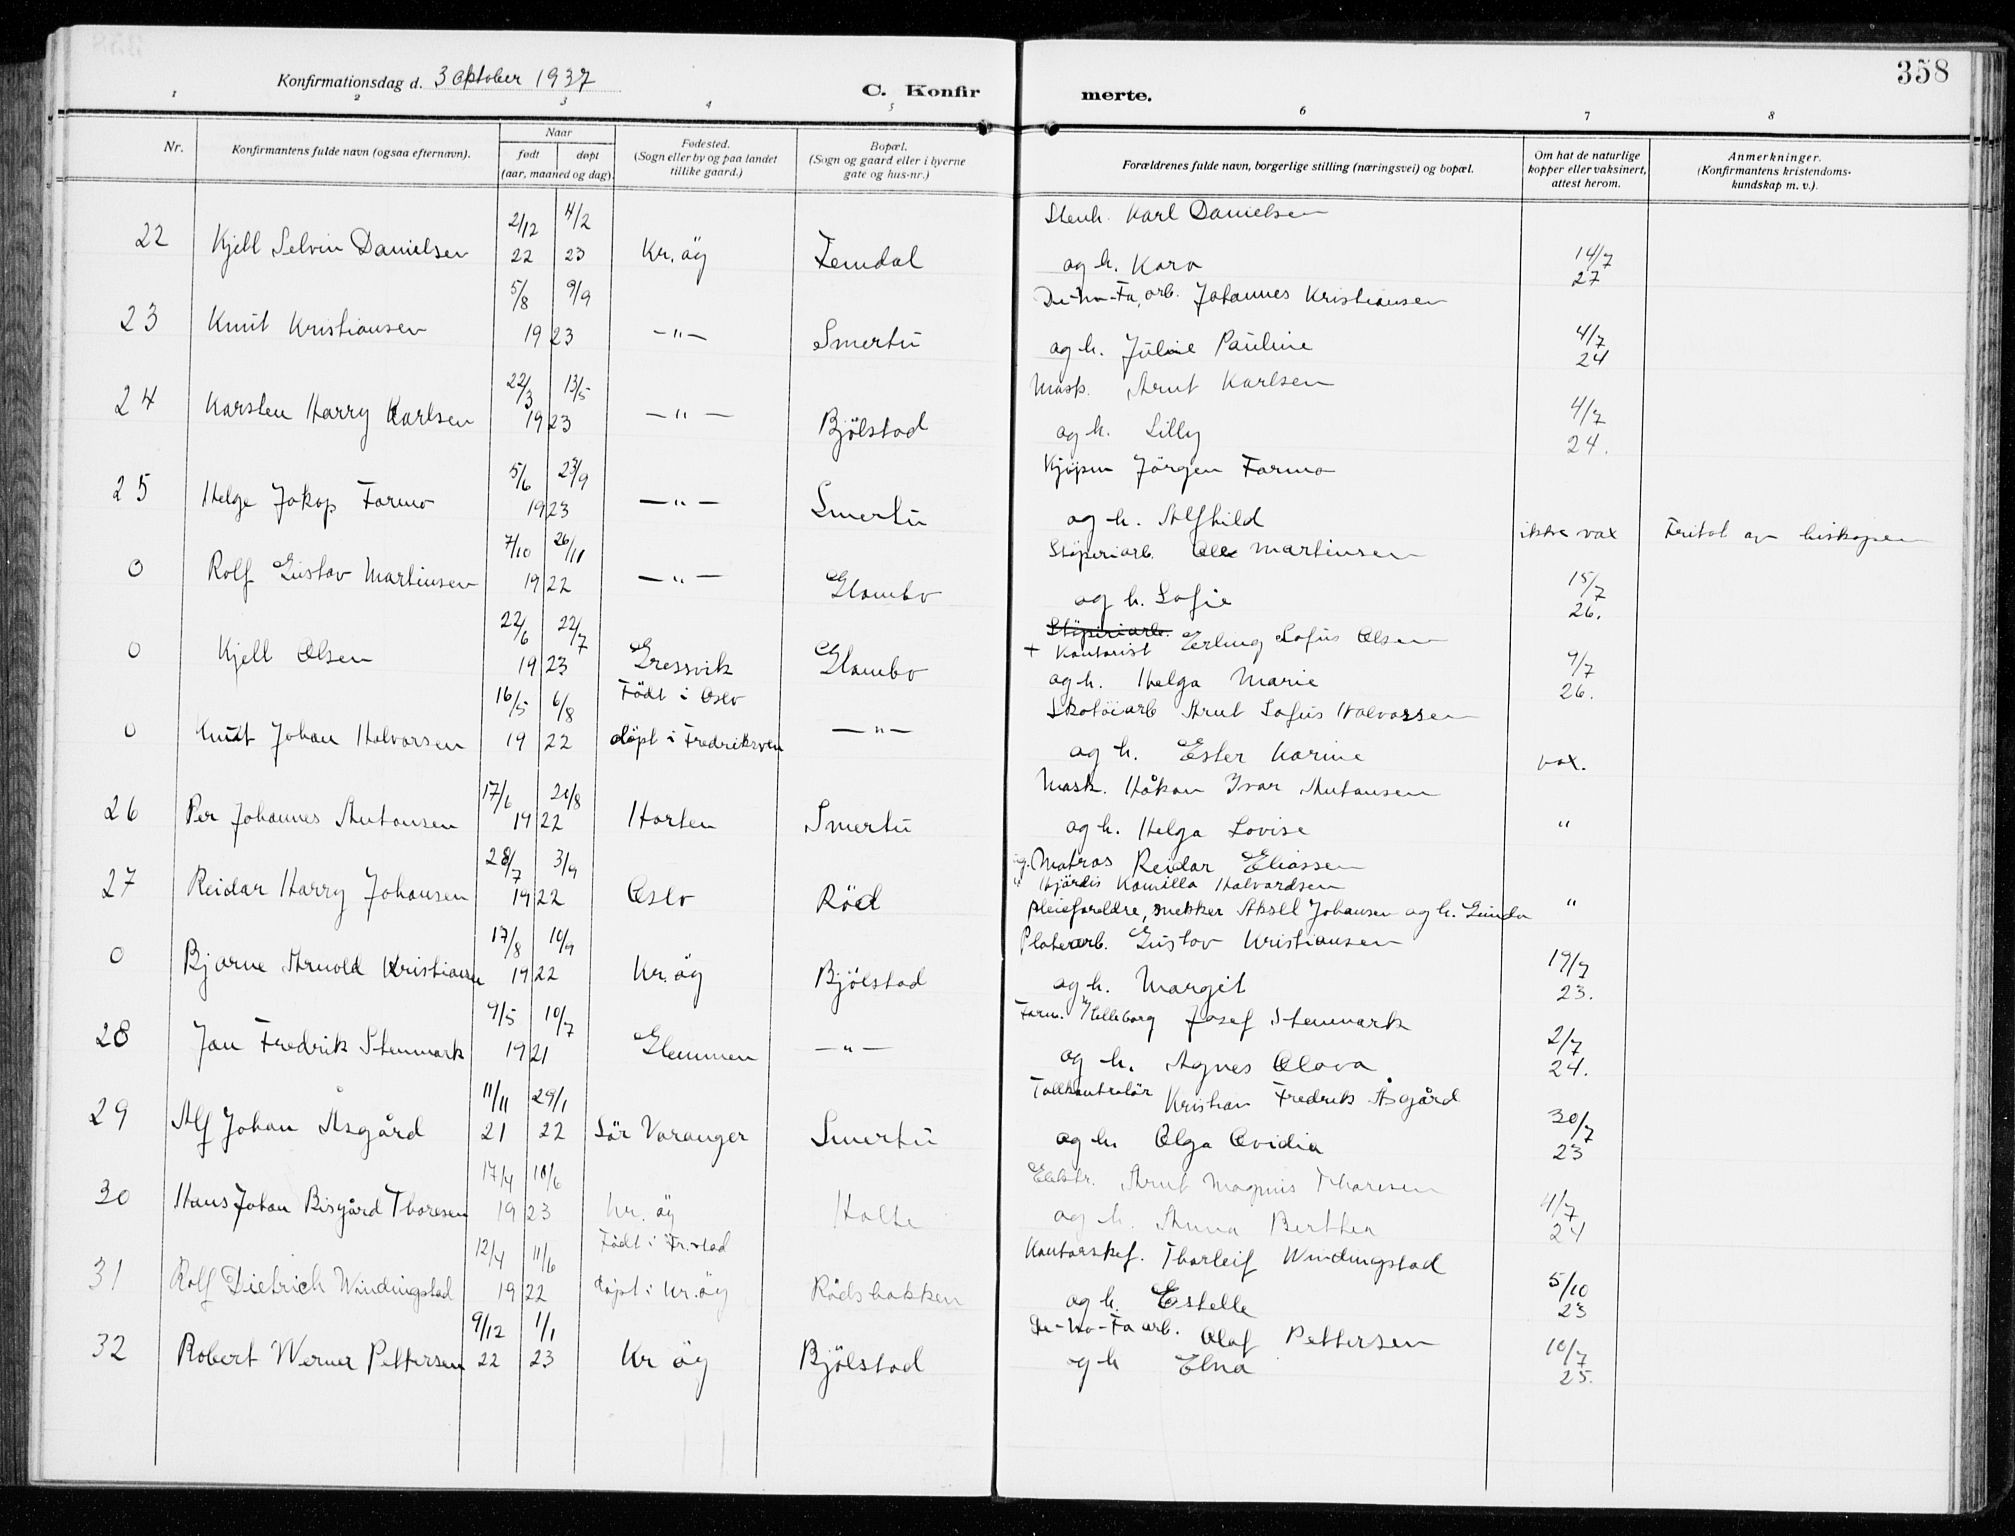 358
Konfirmationsdag d. 3 Oktober 1937
C. Konfirmerte.
1 2 3 4 5 6 7 8
Nr.
Konfirmantens fulde navn (ogsaa efternavn).
Naar
født
døpt
(aar, maaned og dag).
Fødested.
(Sogn eller by og paa landet
tillike gaard.)
Bopæl.
(Sogn og gaard eller i byerne
gate og hus-nr.)
Forældrenes fulde navn, borgerlige stilling (næringsvei) og bopæl.
Om hat de naturlige
kopper eller vaksinert,
attest herom.
Anmerkninger.
(Konfirmantens kristendoms-
kundskap m. v.).
2/12 4/2 Stenh. Karl Danielsen
22 Kjell Selvin Danielsen 22 23 Kr.øy Femdal og h. Kara 14/7 27
5/8 9/9 De-No-Fa, arb. Johannes Kristiansen
23 Knut Kristiansen 19 23 —"— Smertu og h. Julie Pauline 4/7 24
22/3 13/5 Mask. Arnt Karlsen
24 Karsten Harry Karlsen 19 23 —"— Bjølstad og h. Lilly 4/7 24.
5/6 23/9 Kjøpm Jørgen Farmo
25 Helge Jakop Farmo 19 23 —"— Smertu og h. Alfhild ikke vax Fritat av biskopen
7/10 26/11 Støperiarb. Ole Martinsen
0 Rolf Gustav Martinsen 19 22 —"— Glombo og h. Sofie 15/7 26.
22/6 22/7 Støperiarb.
+ Kontorist Erling Sofus Olsen
0 Kjell Olsen 19 23 Gressvik Glombo og h. Helga Marie 4/7 26.
16/5 6/8 Født i Oslo Skotøiarb Arnt Sofus Halvorsen
0 Knut Johan Halvorsen 19 22 døpt i Fredriksvern —"— og h. Ester Karine vax.
17/6 20/8 Mask. Håkon Ivar Antonsen
26 Per Johannes Antonsen 19 22 Horten Smertu og h. Helga Lovise "
28/7 3/9 ug. Matros Reidar Eliassen
" Hjørdis Kamilla Halvardsen
27 Reidar Harry Johansen 19 22 Oslo Rød pleieforeldre, snekker Aksel Johansen og h. Gunda "
17/8 10/9 Platearb. Gustav Kristiansen
0 Bjarne Arnold Kristiansen 19 22 Kr.øy Bjølstad og h. Margit 19/7 23.
9/5 10/7 Form. Helleborg Josef Stenmark
28 Jan Fredrik Stenmark 19 21 Glemmen —"— og h. Agnes Olava 2/7 24.
11/11 29/1 Tollkontrolør Kristian Fredrik Åsgård
29 Alf Johan Åsgård 21 22 Sør Varanger Smertu og h. Olga Ovidia 30/7 23
17/4 10/6 Elektr. Arnt Magnus Thoresen
30 Hans Johan Bisgård Thoresen 19 23 Kr.øy Holte og h. Anna Berthea 4/7 24
12/4 11/6 Født i Fr.stad Kontorskef. Thorleif Windingstad
31 Rolf Dietrich Windingstad 19 22 døpt i Kr.øy Rødsbakken og h. Estelle 5/10 23
9/12 1/1 De-No-Fa arb. Olaf Pettersen
32 Robert Werner Pettersen 22 23 Kr øy Bjølstad og h Elna 10/7 25.